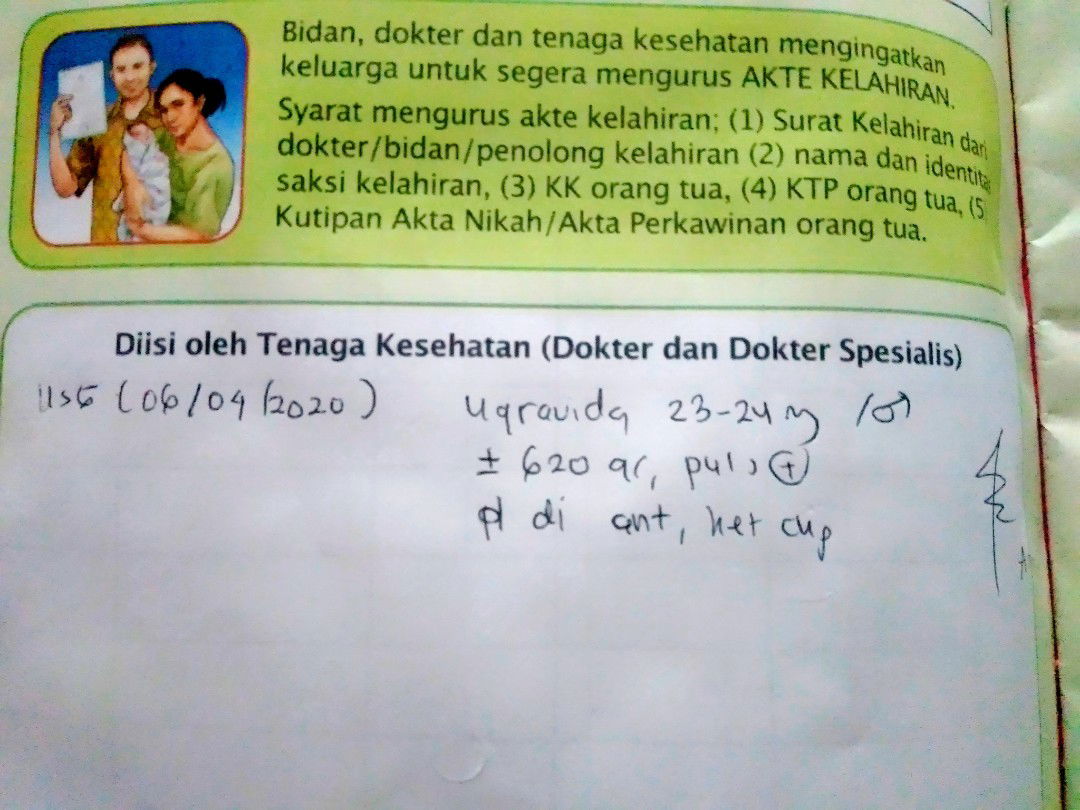 Bidan, dokter dan tenaga kesehatan mengingatkan
keluarga untuk segera mengurus AKTE KELAHIRAN.
Syarat mengurus akte kelahiran; (1) Surat Kelahiran dari
dokter/bidan/penolong kelahiran (2) nama dan identita
saksi kelahiran, (3) KK orang tua, (4) KTP orang tua, (5
Kutipan Akta Nikah/Akta Perkawinan orang tua.
Diisi oleh Tenaga Kesehatan (Dokter dan Dokter Spesialis)
(06/04/2020) gravida 23-24 /♂
± 620 gr, puls (+)
di ant, ket cup